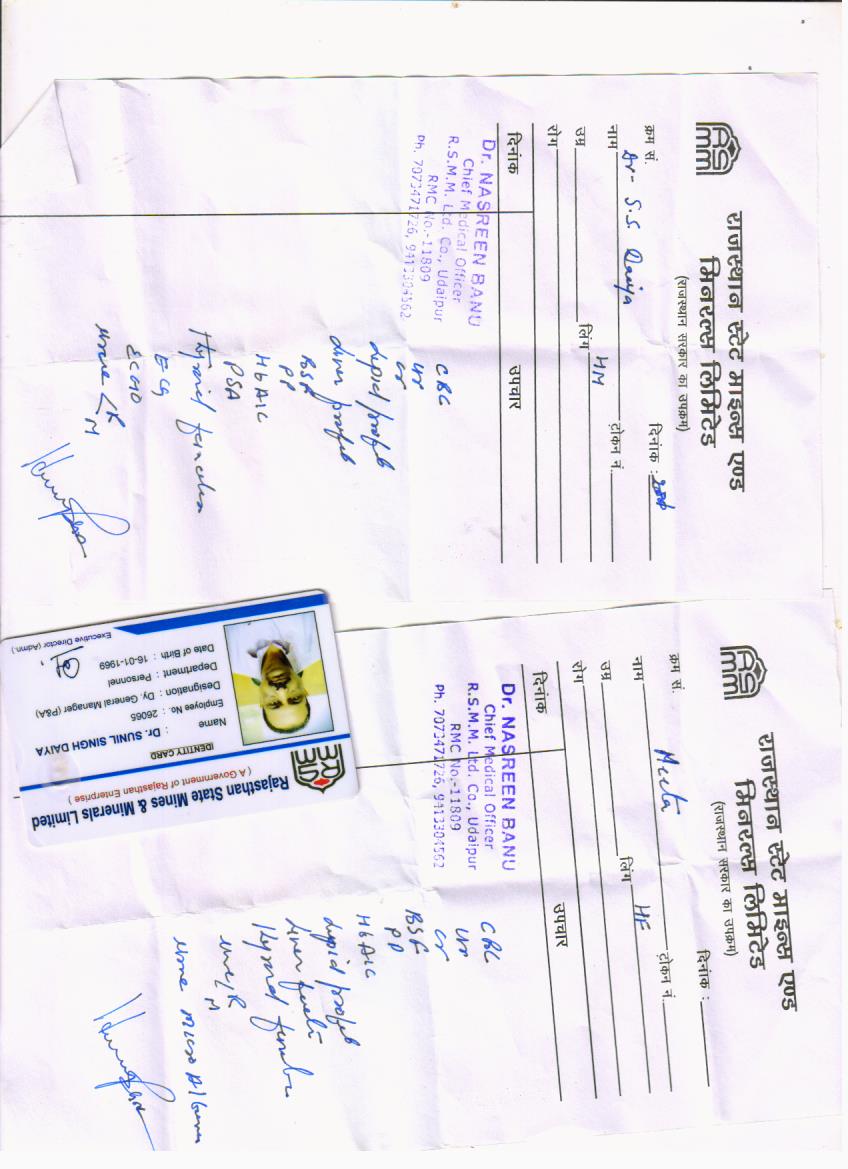 राजस्थान स्टेट माइन्स एण्ड
मिनरल्स लिमिटेड
(राजस्थान सरकार का उपक्रम)
क्रम सं. दिनांक :
नाम Dr- S.S. Daiya
उम्र लिंग HM टोकन नं.
रोग
दिनांक उपचार
Dr. NASREEN BANU
Chief Medical Officer
R.S.M.M. Ltd. Co., Udaipur
RMC No.-11809
Ph. 7073471726, 9413304562
CBC
Ur
Cr
Lipid profile
Liver profile
BSF
PP
HbA1C
PSA
Thyroid function
ECG
ECHO
Urine R
M
राजस्थान स्टेट माइन्स एण्ड
मिनरल्स लिमिटेड
(राजस्थान सरकार का उपक्रम)
क्रम सं. दिनांक :
नाम
उम्र लिंग HF टोकन नं.
रोग
दिनांक उपचार
Dr. NASREEN BANU
Chief Medical Officer
R.S.M.M. Ltd. Co., Udaipur
RMC No.-11809
Ph. 7073471726, 9413304562
CBC
Ur
Cr
BSF
PP
HbA1C
Lipid profile
Liver
Thyroid
R
M
Urine Micro
Rajasthan State Mines & Minerals Limited
( A Government of Rajasthan Enterprise )
IDENTITY CARD
Name : Dr. SUNIL SINGH DAIYA
Employee No. : 26065
Designation : Dy. General Manager (P&A)
Department : Personnel
Date of Birth : 16-01-1969
Executive Director (Admn.)